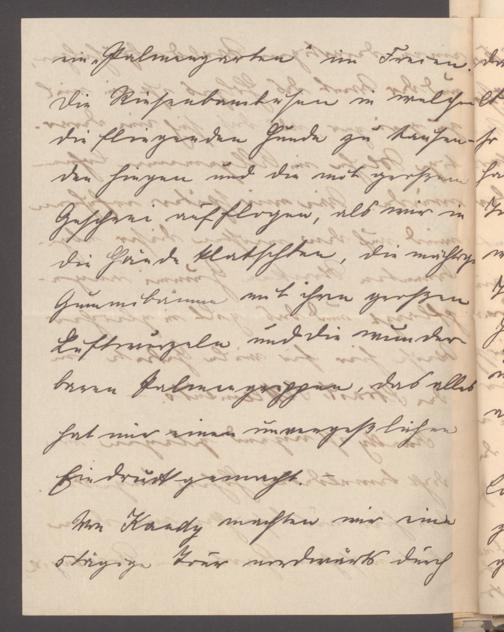 ein „Palmengarten" im Freien.
Die Riesenbambusen in welchen
die fliegenden Hunde zu Tausen-
den hingen und die mit grossem
Geschrei aufflogen, als wir in
die Hände klatschten, die mächtige
Gummibäume mit ihren grossen
Luftwurzeln und die wunder
baren Palmengruppen, das alles
hat mir einen unvergeßlichen
Eindruck gemacht. –
Von Kandy machten wir eine
5tägige Tour nordwärts durch